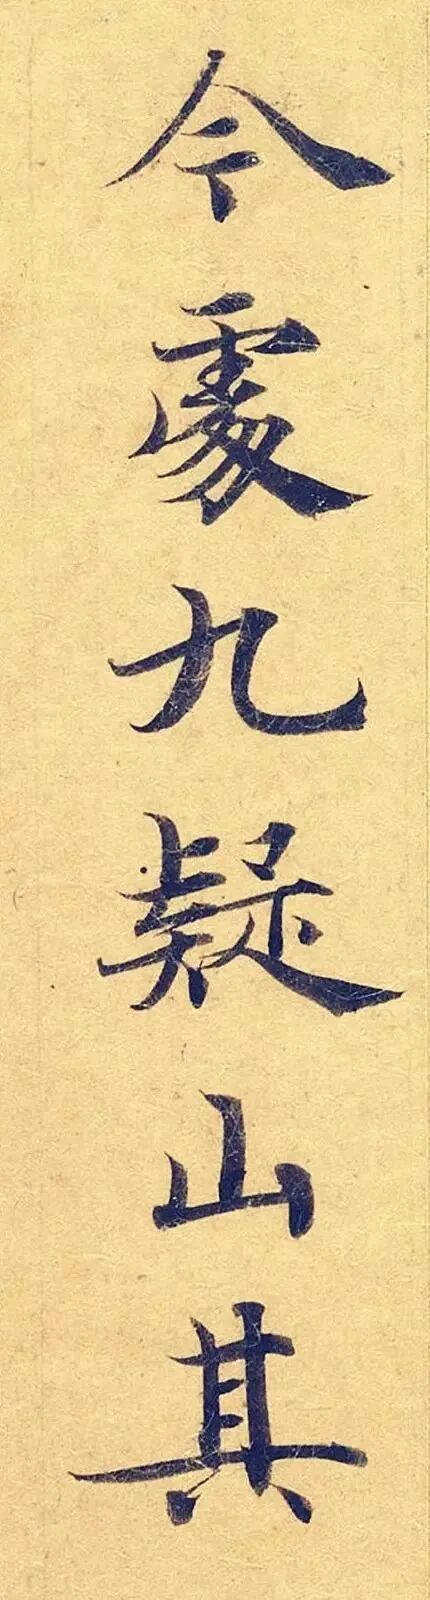 今處九疑山其